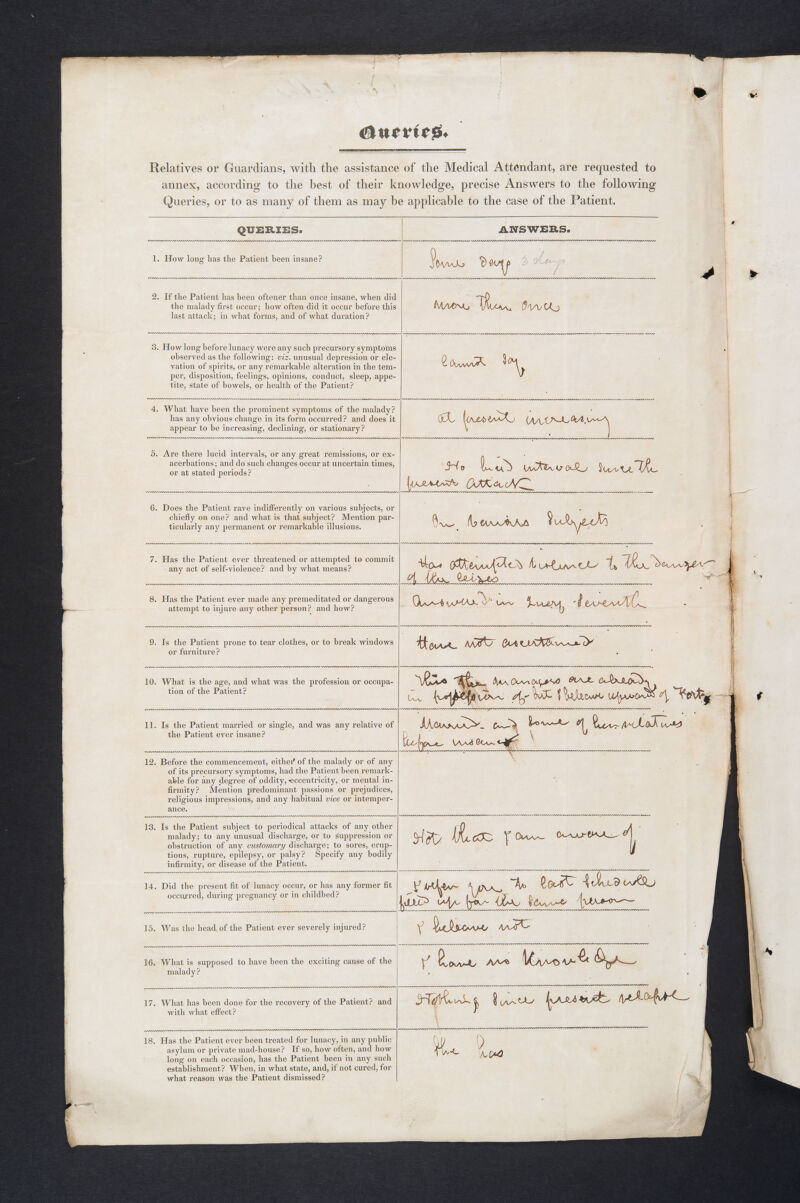 Queries.
Relatives or Guardians, with the assistance of the Medical Attendant, are requested to
annex, according to the best of their knowledge, precise Answers to the following
Queries, or to as many of them as may be applicable to the case of the Patient.
QUERIES.
ANSWERS.
1. How long has the Patient been insane?
Some Days 3 days
2. If the Patient has been oftener than once insane, when did
the malady first occur; how often did it occur before this
last attack; in what forms, and of what duration?
more then once
3. How long before lunacy were any such precursory symptoms
observed as the following: viz. unusual depression or ele-
vation of spirits, or any remarkable alteration in the tem-
per, disposition, feelings, opinions, conduct, sleep, appe-
tite, state of bowels, or health of the Patient?
Cannot Say,
4. What have been the prominent symptoms of the malady?
has any obvious change in its form occurred? and does it
appear to be increasing, declining, or stationary?
at present increasing
5. Are there lucid intervals, or any great remissions, or ex-
acerbations; and do such changes occur at uncertain times,
or at stated periods?
No lucid interval since the
present attack
6. Does the Patient rave indifferently on various subjects, or
chiefly on one? and what is that subject? Mention par-
ticularly any permanent or remarkable illusions.
On various Subjects
7. Has the Patient ever threatened or attempted to commit
any act of self-violence? and by what means?
Has attempted violence to the Danger
of the Leizes
8. Has the Patient ever made any premeditated or dangerous
attempt to injure any other person? and how?
Answered in Query Seventh
9. Is the Patient prone to tear clothes, or to break windows
or furniture?
Have not ascertained
10. What is the age, and what was the profession or occupa-
tion of the Patient?
This the managers are already
in possession of- but I beleave upwards of Forty
11. Is the Patient married or single, and was any relative of
the Patient ever insane?
Married- and some of her relatives
before insane
12. Before the commencement, either of the malady or of any
of its precursory symptoms, had the Patient been remark-
able for any degree of oddity, eccentricity, or mental in-
firmity? Mention predominant passions or prejudices,
religious impressions, and any habitual vice or intemper-
ance.
13. Is the Patient subject to periodical attacks of any other
malady; to any unusual discharge, or to suppression or
obstruction of any customary discharge; to sores, erup-
tions, rupture, epilepsy, or palsy? Specify any bodily
infirmity, or disease of the Patient.
Not that I am aware of
14. Did the present fit of lunacy occur, or has any former fit
occurred, during pregnancy or in childbed?
I refer you to last Schedule
filled up for the same person
15. Was the head of the Patient ever severely injured?
I beleave not
16. What is supposed to have been the exciting cause of the
malady?
I have no Knowledge
17. What has been done for the recovery of the Patient? and
with what effect?
Nothing Since present relapse
18. Has the Patient ever been treated for lunacy, in any public
asylum or private mad-house? If so, how often, and how
long on each occasion, has the Patient been in any such
establishment? When, in what state, and, if not cured, for
what reason was the Patient dismissed?
She has